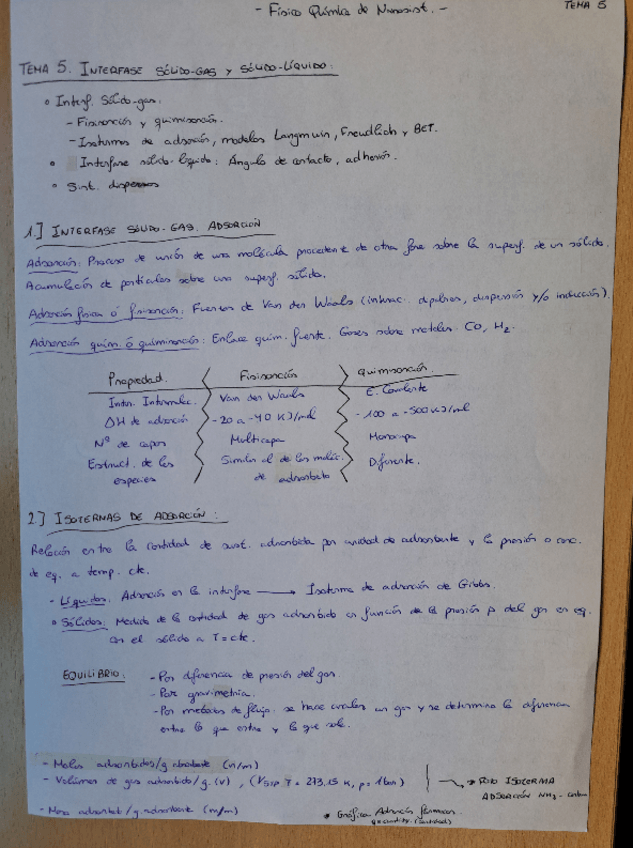 - Físico Química de Nanosist. -
TEMA 5
TEMA 5. INTERFASE SÓLIDO-GAS Y SÓLIDO-LÍQUIDO:
◦ Interf. Sólido-gas:
- Fisisorción y quimisorción.
- Isotermas de adsorción, modelos Langmuir, Freudlich y BET.
• Interfase sólido-líquido: Ángulo de contacto, adhesión.
◦ Sist. dispersos
1.] INTERFASE SÓLIDO-GAS. ADSORCIÓN
Adsorción: Proceso de unión de una molécula procedente de otra fase sobre la superf. de un sólido.
Acumulación de partículas sobre una superf. sólida.
Adsorción física ó fisisorción: Fuerzas de Van der Waals (interac. dipolares, dispersión y/o inducción).
Adsorción quím. ó quimisorción: Enlace quím. fuerte. Gases sobre metales. CO, H2.
Propiedad. Fisisorción quimisorción.
Inter. Intermolec. Van der Waals E. Covalente
ΔH de adsorción -20 a -40 KJ/mol -100 a -500 KJ/mol
Nº de capas Multicapa Monocapa
Estruct. de las Similar al de las moléc. Diferente.
especies de adsorbato
2.] ISOTERNAS DE ADSORCIÓN:
Relación entre la cantidad de sust. adsorbida por unidad de adsorbente y la presión o conc.
de eq. a temp. cte.
- Líquidos: Adsorción en la interfase → Isoterma de adsorción de Gibbs.
• Sólidos: Medida de la cantidad de gas adsorbido en función de la presión p del gas en eq.
con el sólido a T=cte.
EQUILIBRIO: - Por diferencia de presión del gas
- Por gravimetría.
- Por métodos de flujo: se hace circular un gas y se determina la diferencia
entre lo que entra y lo que sale.
- Moles adsorbidos/g adsorbente (n/m)
- Volumen de gas adsorbido/g. (v), (VSTP T = 273,15 K, p = 1 bar) → FOTO ISOTERMA
ADSORCIÓN NH3 - carbón
- Masa adsorbat/g adsorbente (m/m)
• Gráfica Adsorción
quantity (cantidad)